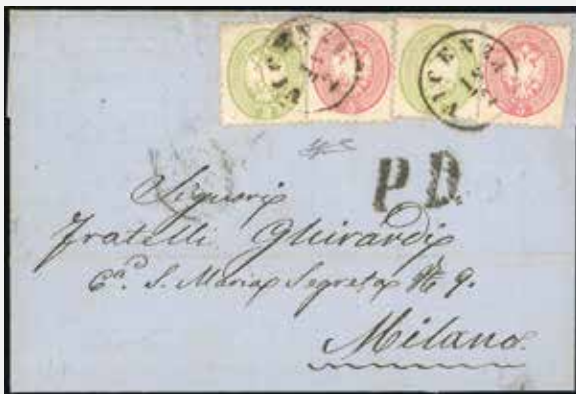 VICENZA
VICENZA
P.D.
Signori
Fratelli Ghirardi
S. Maria Segreta № 9.
Milano.